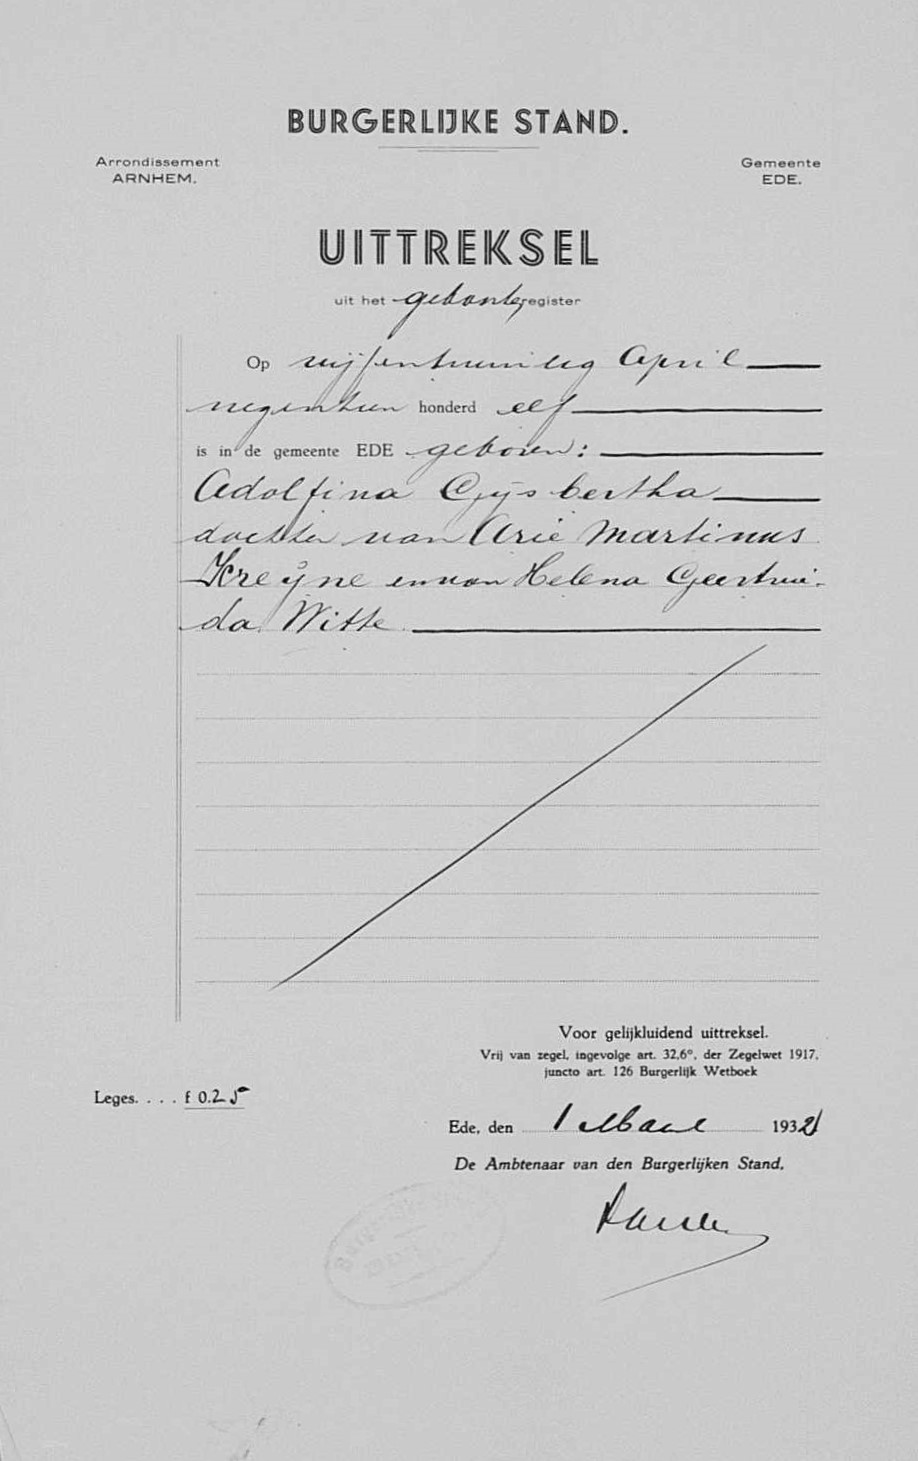 BURGERLIJKE STAND.
Arrondissement
ARNHEM.
Gemeente
EDE.
UITTREKSEL
uit het geboorteregister
Op vijfentwintig April
negentien honderd elf
is in de gemeente EDE geboren:
Adolfina Gijsbertha
dochter van Arie Martinus
Kreijne en van Helena Geertrui-
da Witte
Voor gelijkluidend uittreksel.
Vrij van zegel, ingevolge art. 32,6°, der Zegelwet 1917,
juncto art. 126 Burgerlijk Wetboek
Leges. . . . f 0.25
Ede, den 1 Maart 1932
De Ambtenaar van den Burgerlijken Stand,